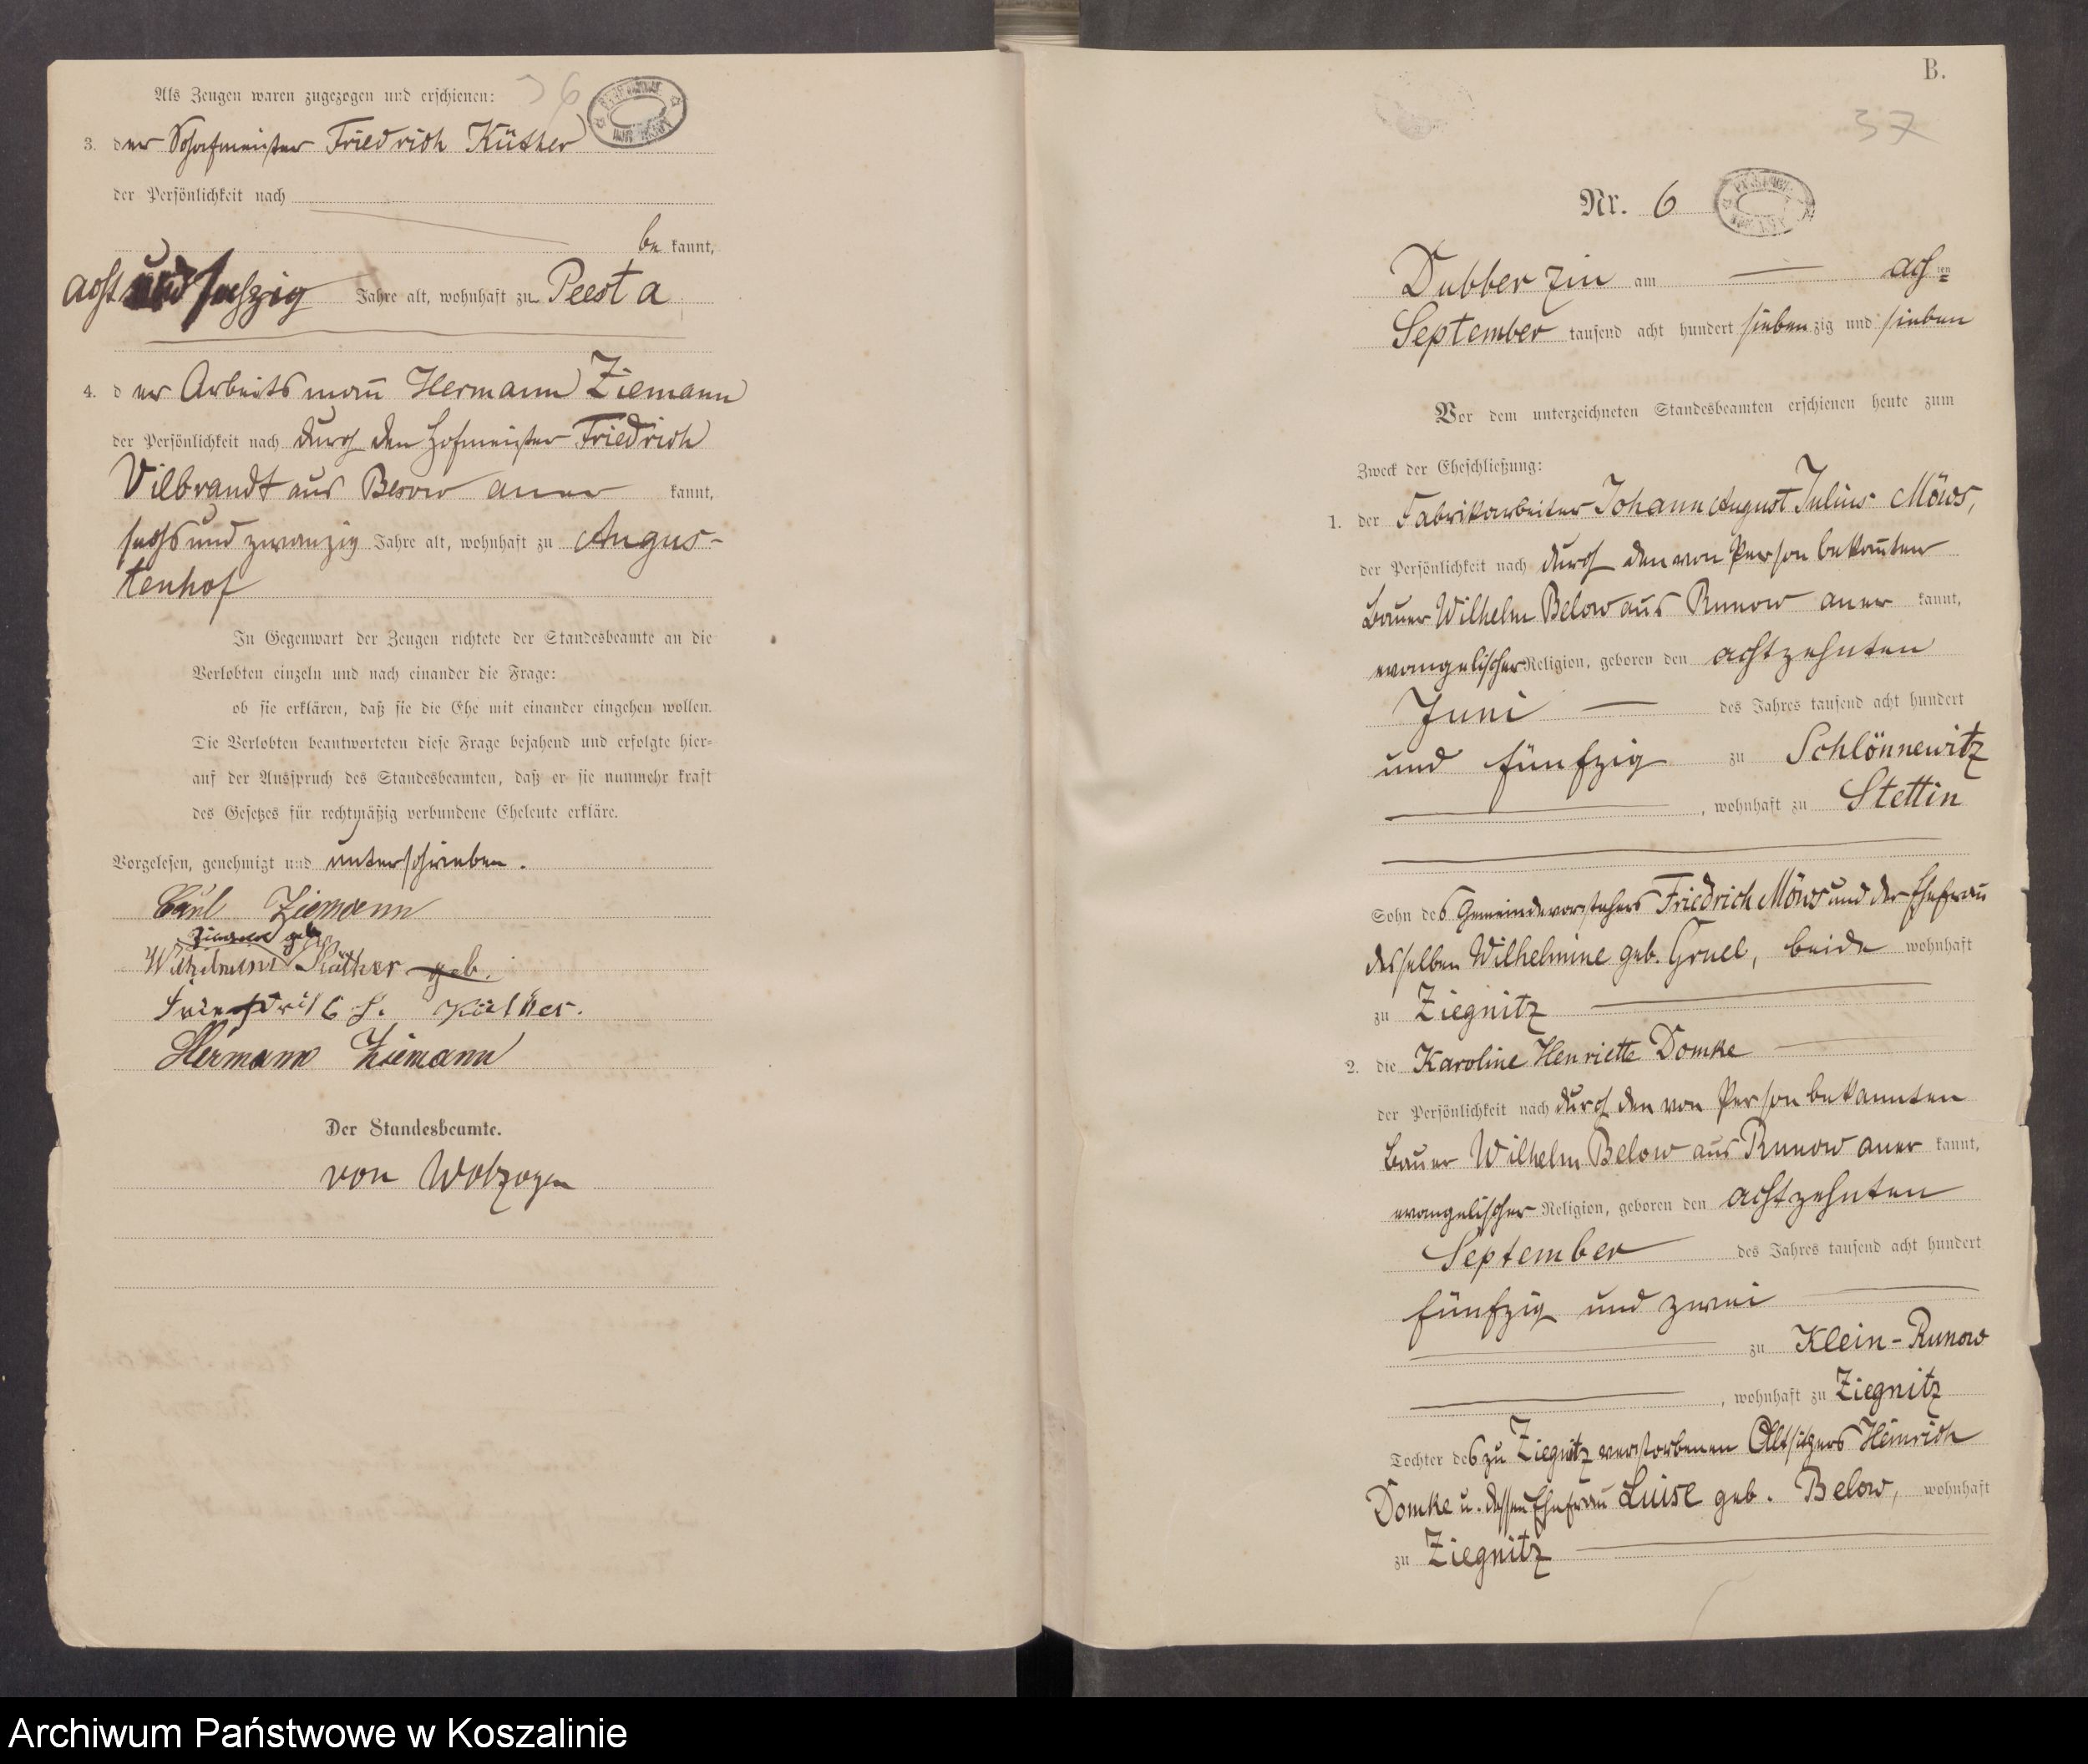 36
Als Zeugen waren zugezogen und erschienen:
3. der Schafmeister Friedrich Küther
der Persönlichkeit nach
be kannt,
acht und sechzig Jahre alt, wohnhaft zu Peest a
4. der Arbeitsmann Hermann Ziemann
der Persönlichkeit nach durch den Hofmeister Friedrich
Vilbrandt aus Besow aner kannt,
sechs und zwanzig Jahre alt, wohnhaft zu Augus-
tenhof
In Gegenwart der Zeugen richtete der Standesbeamte an die
Verlobten einzeln und nach einander die Frage:
ob sie erklären, daß sie die Ehe mit einander eingehen wollen.
Die Verlobten beantworteten diese Frage bejahend und erfolgte hier=
auf der Ausspruch des Standesbeamten, daß er sie nunmehr kraft
des Gesetzes für rechtmäßig verbundene Eheleute erkläre.
Vorgelesen, genehmigt und unterschrieben.
Carl Ziemann
Ziemann geb.
Wilhelmine Küther geb.
Friedrich Küther.
Hermann Ziemann
Der Standesbeamte.
von Wolzogen
B.
37
Nr. 6
Dubberzin am ach ten
September tausend acht hundert sieben zig und sieben
Vor dem unterzeichneten Standesbeamten erschienen heute zum
Zweck der Eheschließung:
1. der Fabrikarbeiter Johann August Julius Möws,
der Persönlichkeit nach durch den von Person bekannten
Bauer Wilhelm Below aus Runow aner kannt,
evangelischer Religion, geboren den achtzehnten
Juni des Jahres tausend acht hundert
und fünfzig zu Schlönnewitz
, wohnhaft zu Stettin
Sohn des Gemeindevorstehers Friedrich Möws und der Ehefrau
desselben Wilhelmine geb. Gruel, beide wohnhaft
zu Ziegnitz
2. die Karoline Henriette Domke
der Persönlichkeit nach durch den von Person bekannten
Bauer Wilhelm Below aus Runow aner kannt,
evangelischer Religion, geboren den achtzehnten
September des Jahres tausend acht hundert
fünfzig und zwei
zu Klein-Runow
, wohnhaft zu Ziegnitz
Tochter des zu Ziegnitz verstorbenen Altsitzers Heinrich
Domke u. dessen Ehefrau Luise geb. Below, wohnhaft
zu Ziegnitz
Archiwum Państwowe w Koszalinie